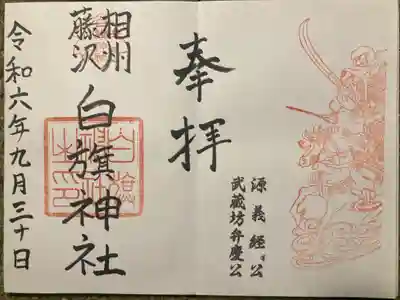 奉拝
源義経公
武蔵坊弁慶公
相州
藤沢
白旗神社
令和六年九月三十日